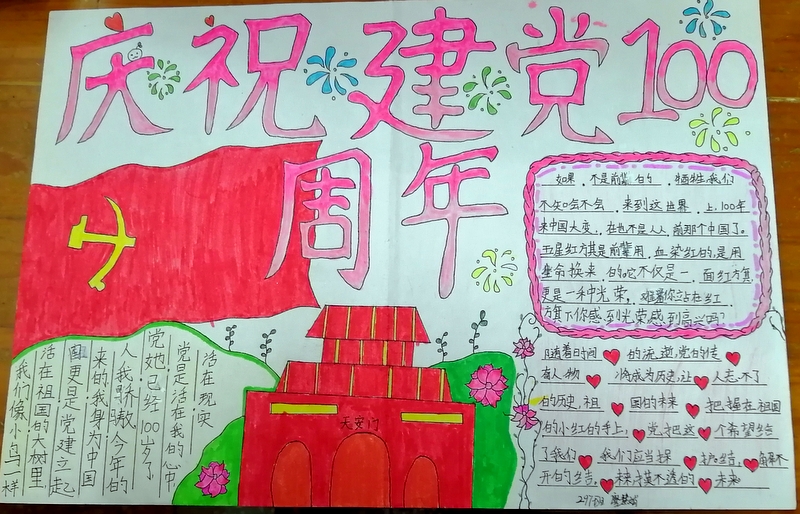 庆祝建党100
周年
如果，不是前辈的，牺牲，我们
不知会不会，来到这世界，上，100年
来中国大变，在也不是人人，前那个中国了。
五星红方其是前辈用，血染红的，是用
生命换来的它不仅是一，面红方旗
更是一种光荣，难着你立占在红
方旗下你感到光荣感到高兴吗？
活在现实
党是活在我的心中
党她已经100岁了
人我骄傲今年的
来的我身为中国
国更是党建立起
活在祖国的大树里
我们像小鸟一样
天安门
随着时间的流逝，党的传
有人物将成为历史，让人忘不了
的历史，祖国的未来把握在祖国
的小红的手上，党把这个希望给
了我们我们应当保护结，
开的结。未来摸不透的未来